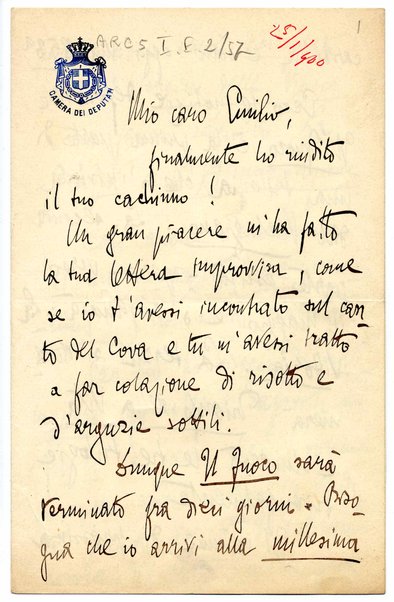 ARC5 I.E 2/57
25/1/900
1
CAMERA DEI DEPUTATI
Mio caro Emilio,
finalmente ho riudito
il tuo cachinno!
Un gran piacere m'ha fatto
la tua lettera improvvisa, come
se io t'avessi incontrato sul can
to del Cova e tu m'avessi tratto
a far colazione di risotto e
d'arguzie sottili.
Dunque Il Fuoco sarà
terminato fra dieci giorni. Biso
gna che io arrivi alla millesima